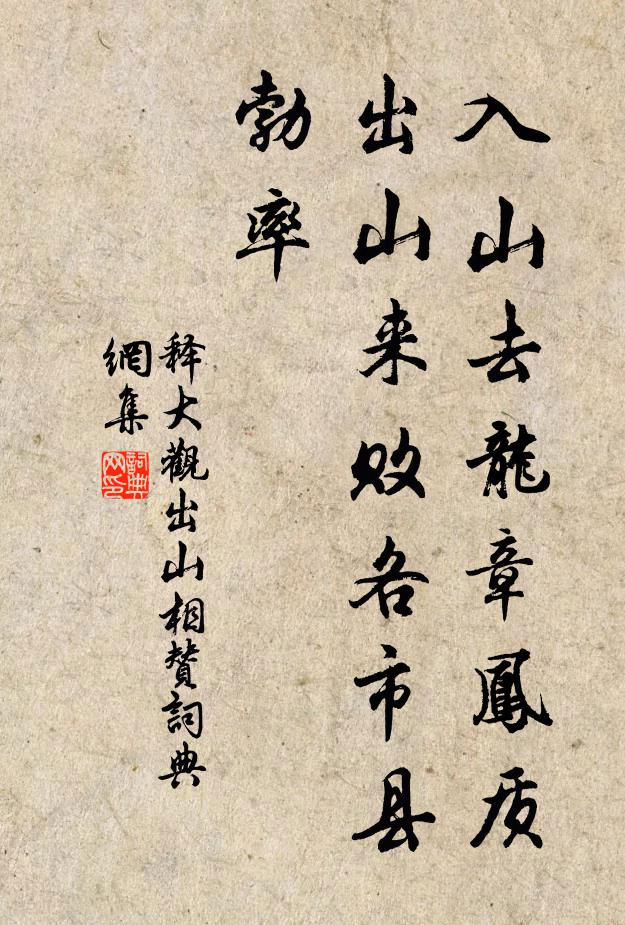 入山去龍章鳳质
出山来败各市县
勃率
释大觀出山相赞詞典
網集
詞典
网印